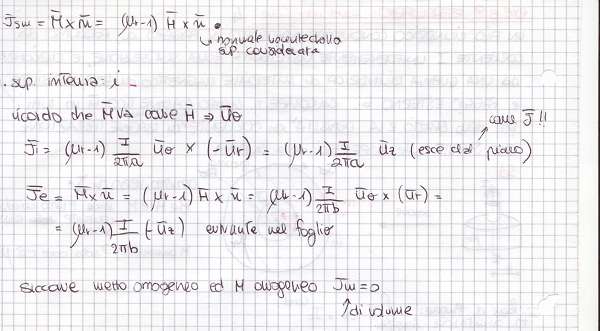 J̄sm = M̄ × n̄ = (μr-1) H̄ × n̄ .
↳ normale uscente dalla
sup. considerata
. sup. interna: i -
ricordo che M̄ va come H̄ ⇒ ūθ
come J̄ !!
J̄i = (μr-1) I/2πa ūθ × (-ūr) = (μr-1) I/2πa ūz (esce dal piano)
J̄e = M̄ × n̄ = (μr-1) H̄ × n̄ = (μr-1) I/2πb ūθ × (ūr) =
= (μr-1) I/2πb (-ūz) entrante nel foglio
siccome mezzo omogeneo ed M omogeneo Jm = 0
↑ di volume